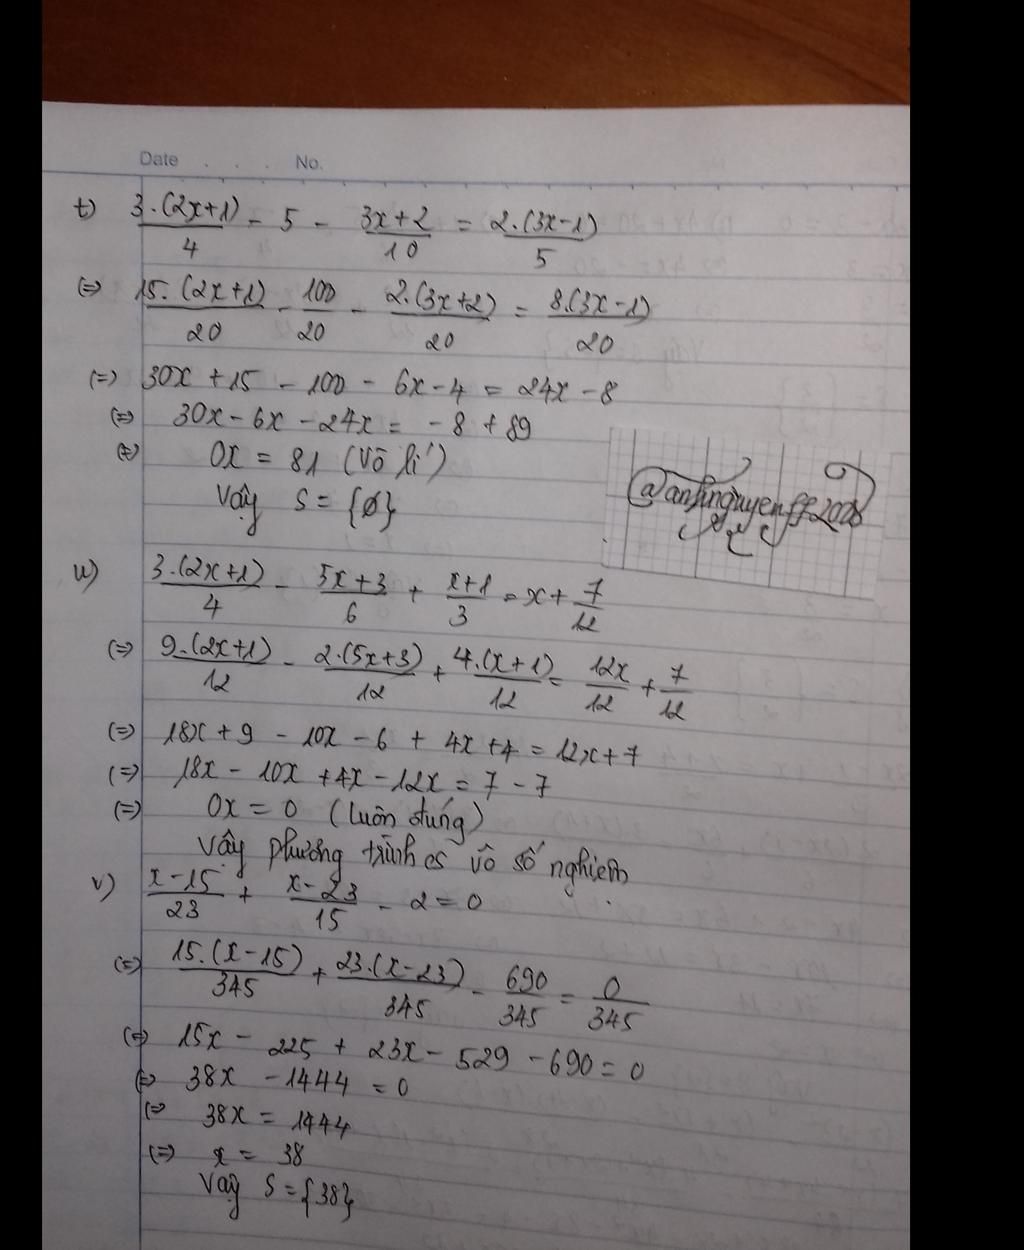 Date . . . No.
t) 3.(2x+1)/4 - 5 - 3x+2/10 = 2.(3x-1)/5
(=) 15.(2x+1)/20 - 100/20 - 2.(3x+2)/20 = 8.(3x-1)/20
(=) 30x + 15 - 100 - 6x - 4 = 24x - 8
(=) 30x - 6x - 24x = - 8 + 89
(=) 0x = 81 (vô lí)
Vậy S = {Ø}
@anhnguyenff2008
u) 3.(2x+1)/4 - 5x+3/6 + x+1/3 = x + 7/12
(=) 9.(2x+1)/12 - 2.(5x+3)/12 + 4.(x+1)/12 = 12x/12 + 7/12
(=) 18x + 9 - 10x - 6 + 4x + 4 = 12x + 7
(=) 18x - 10x + 4x - 12x = 7 - 7
(=) 0x = 0 (luôn đúng)
Vậy phương trình có vô số nghiệm
v) x-15/23 + x-23/15 - 2 = 0
(=) 15.(x-15)/345 + 23.(x-23)/345 - 690/345 = 0/345
(=) 15x - 225 + 23x - 529 - 690 = 0
(=) 38x - 1444 = 0
(=) 38x = 1444
(=) x = 38
Vậy S = {38}